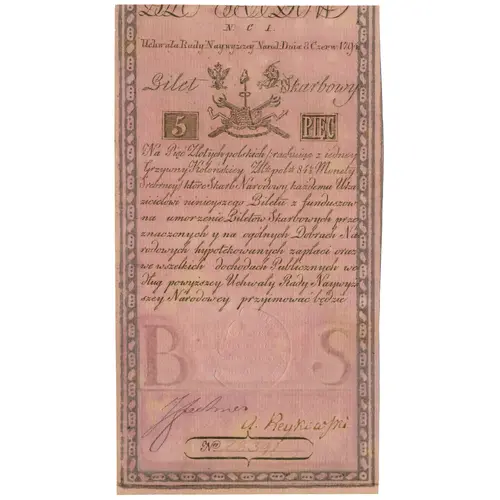 N C I
Uchwała Rady Naywyższey Narod: Dnia 8 Czerw: 1794
Bilet Skarbowy
5 PIĘĆ
Na Pięć Złotych polskich rachuiąc z iedney
Grzywny Kolońskiey Złt: pols: 84½ Monety
Srebrney, które Skarb Narodowy, każdemu
ścicielowi ninieyszego Biletu z funduszow
na umorzenie Biletów Skarbowych prze
znaczonych y na ogólnych Dobrach Na
rodowych hypotekowanych zapłaci oraz
we wszelkich dochodach Publicznych we
dług powyższey Uchwały Rady Naywyż
szey Narodowey przyimować będzie
B S
A. Reykowski
No